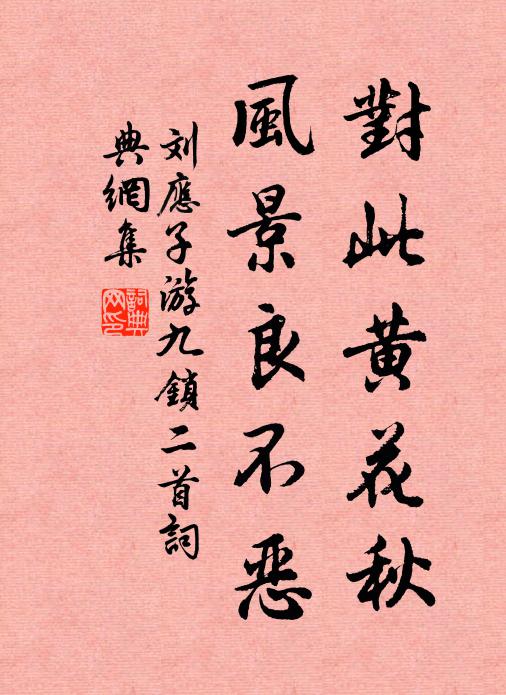 對此黄花秋
風景良不恶
刘應子游九鎖二首詞
典網集
詞典网印